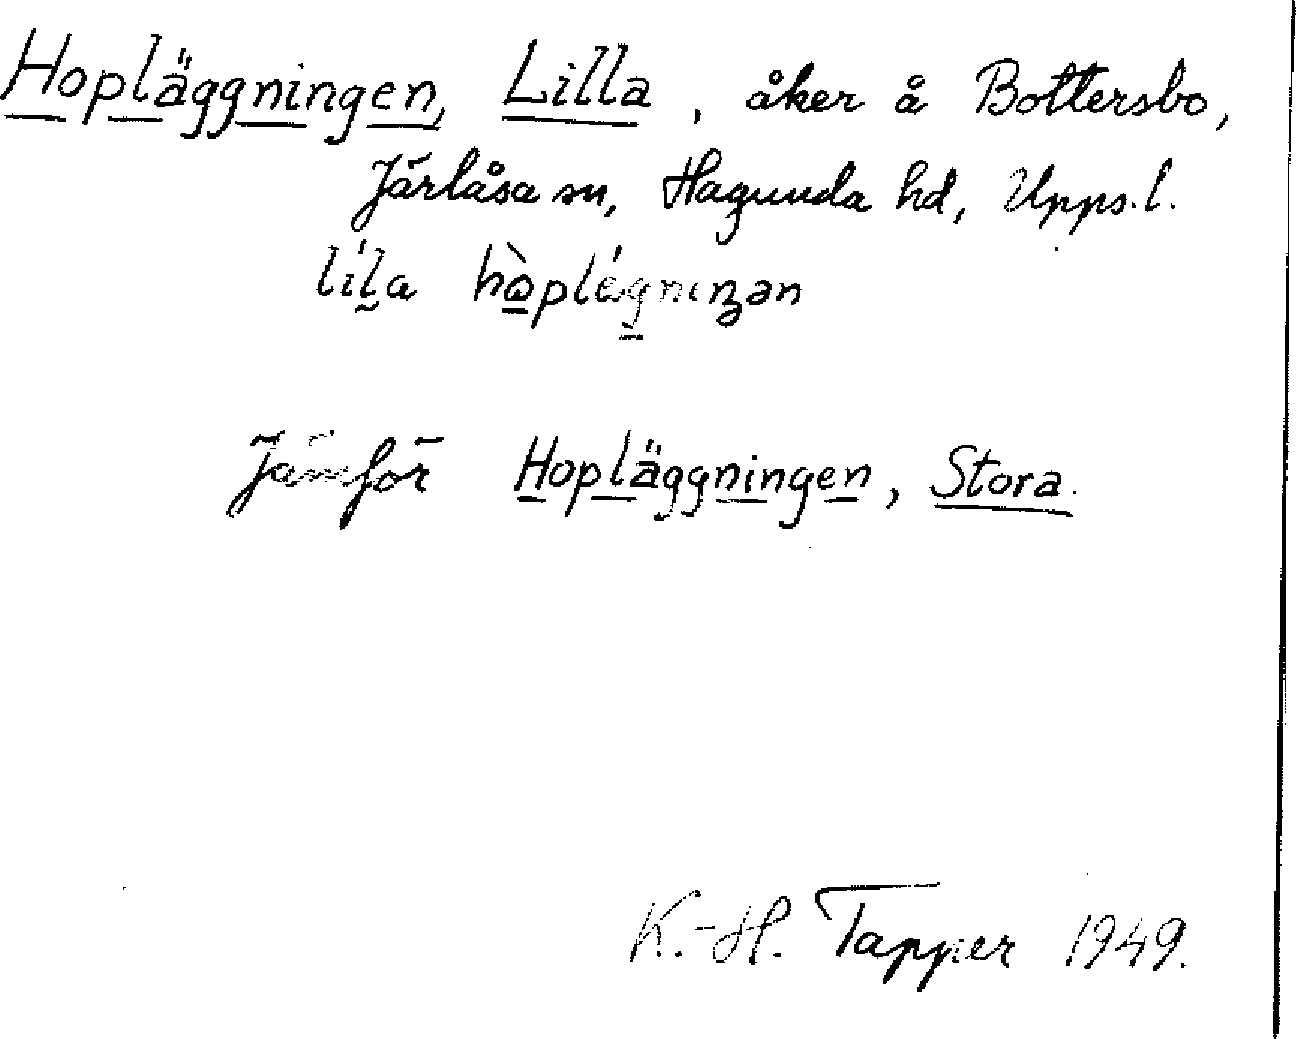 Hopläggningen, Lilla, åker å Bottersbo,
Järlåsa sn, Hagunda hd, Upps. l.
líḷa hò̱plég̱niŋən
Jämför Hopläggningen, Stora.
K.-H. Tapper 1949.